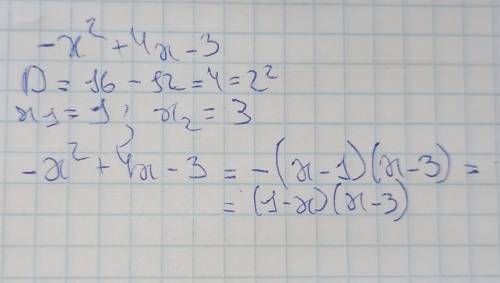 -x² + 4x - 3
D = 16 - 12 = 4 = 2²
x₁ = 1; x₂ = 3
-x² + 4x - 3 = -(x - 1)(x - 3) =
= (1 - x)(x - 3)